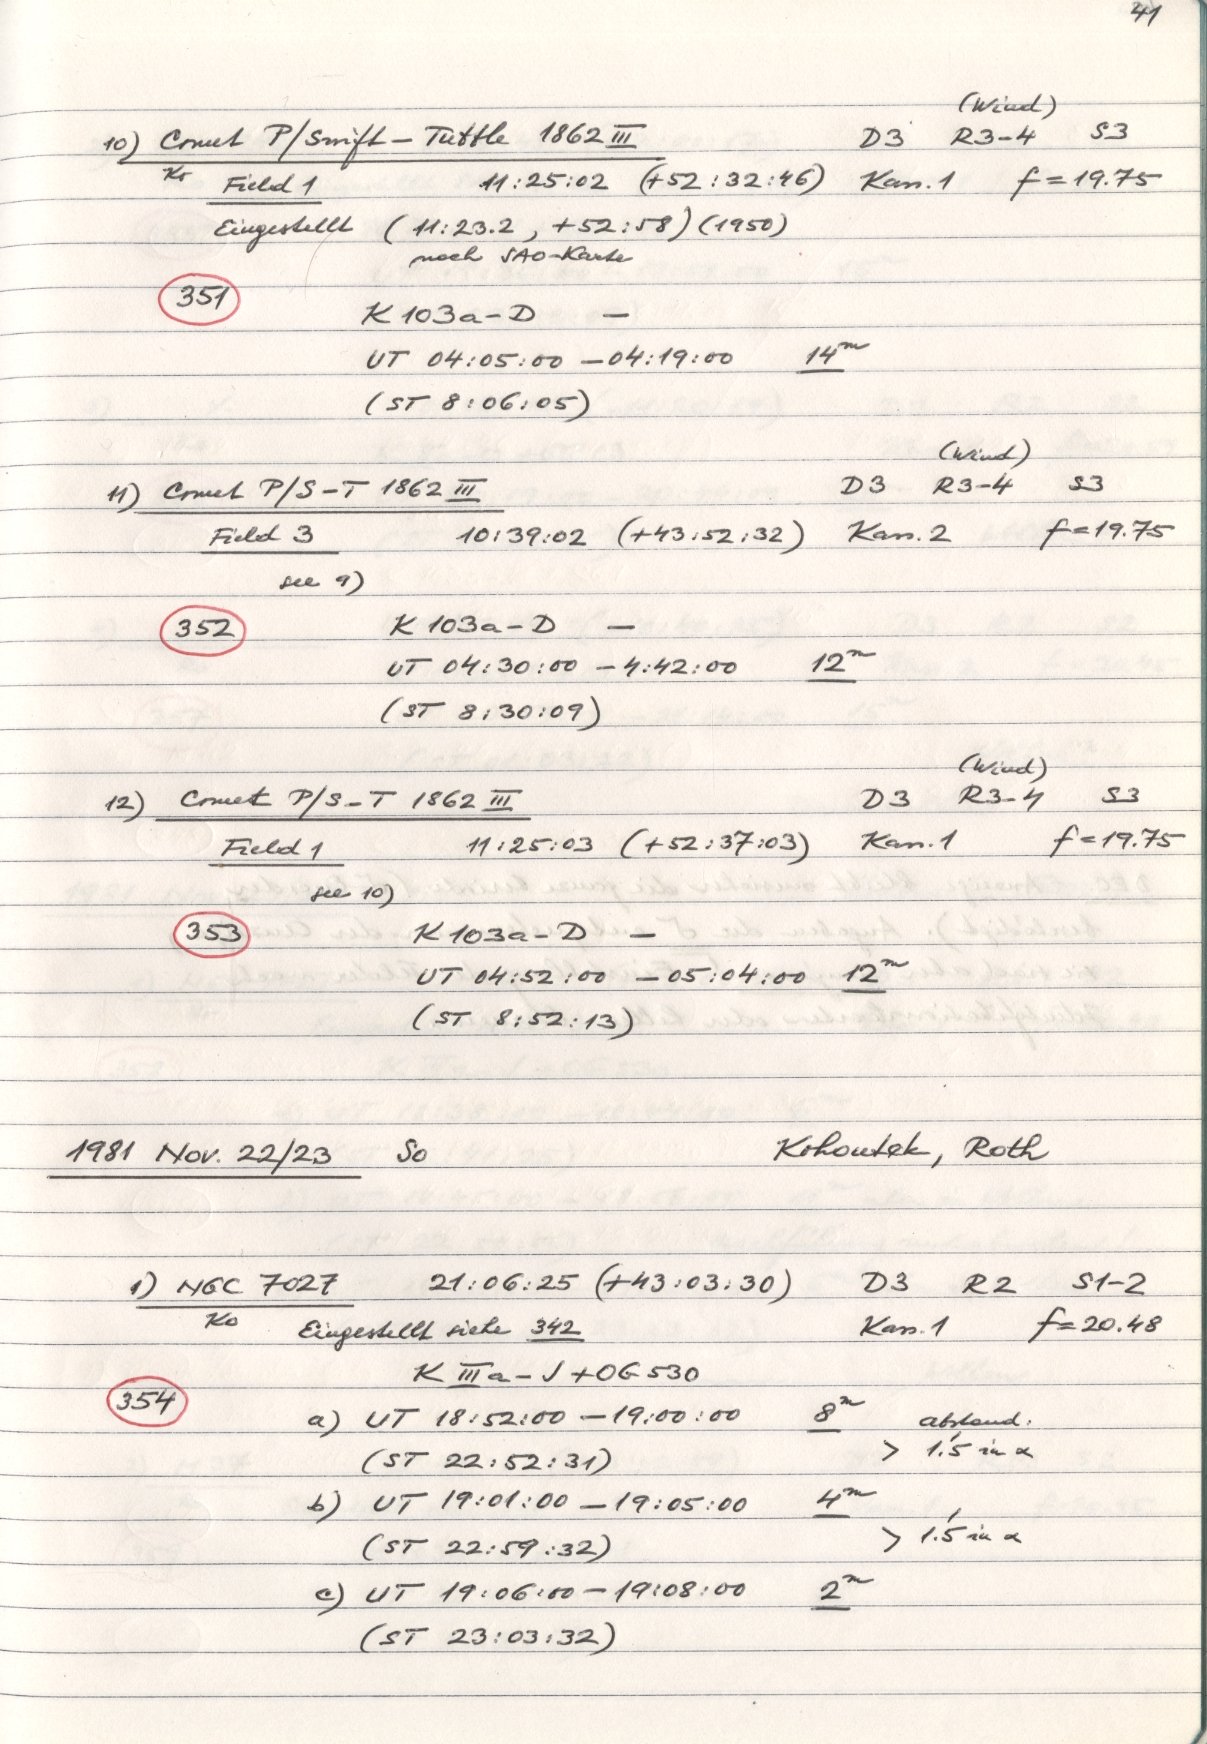 41
(Wind)
10) Comet P/Swift-Tuttle 1862 III D3 R3-4 S3
Ko Field 1 11:25:02 (+52:32:46) Kass.1 f=19.75
Eingestellt (11:23.2, +52:58) (1950)
nach SAO-Karte
351
K 103a-D —
UT 04:05:00 - 04:19:00 14m
(ST 8:06:05)
(Wind)
11) Comet P/S-T 1862 III D3 R3-4 S3
Field 3 10:39:02 (+43:52:32) Kass.2 f=19.75
see 9)
352 K 103a-D —
UT 04:30:00 - 4:42:00 12m
(ST 8:30:09)
(Wind)
12) Comet P/S-T 1862 III D3 R3-4 S3
Field 1 11:25:03 (+52:37:03) Kass.1 f=19.75
see 10)
353 K 103a-D —
UT 04:52:00 - 05:04:00 12m
(ST 8:52:13)
1981 Nov. 22/23 So Kohoutek, Roth
1) NGC 7027 21:06:25 (+43:03:30) D3 R2 S1-2
Ko Eingestellt siehe 342 Kass.1 f=20.48
K IIIa-J+OG530
354
a) UT 18:52:00 - 19:00:00 8m Abstand:
(ST 22:52:31) > 1.'5 in α
b) UT 19:01:00 - 19:05:00 4m
(ST 22:59:32) > 1.'5 in α
c) UT 19:06:00 - 19:08:00 2m
(ST 23:03:32)